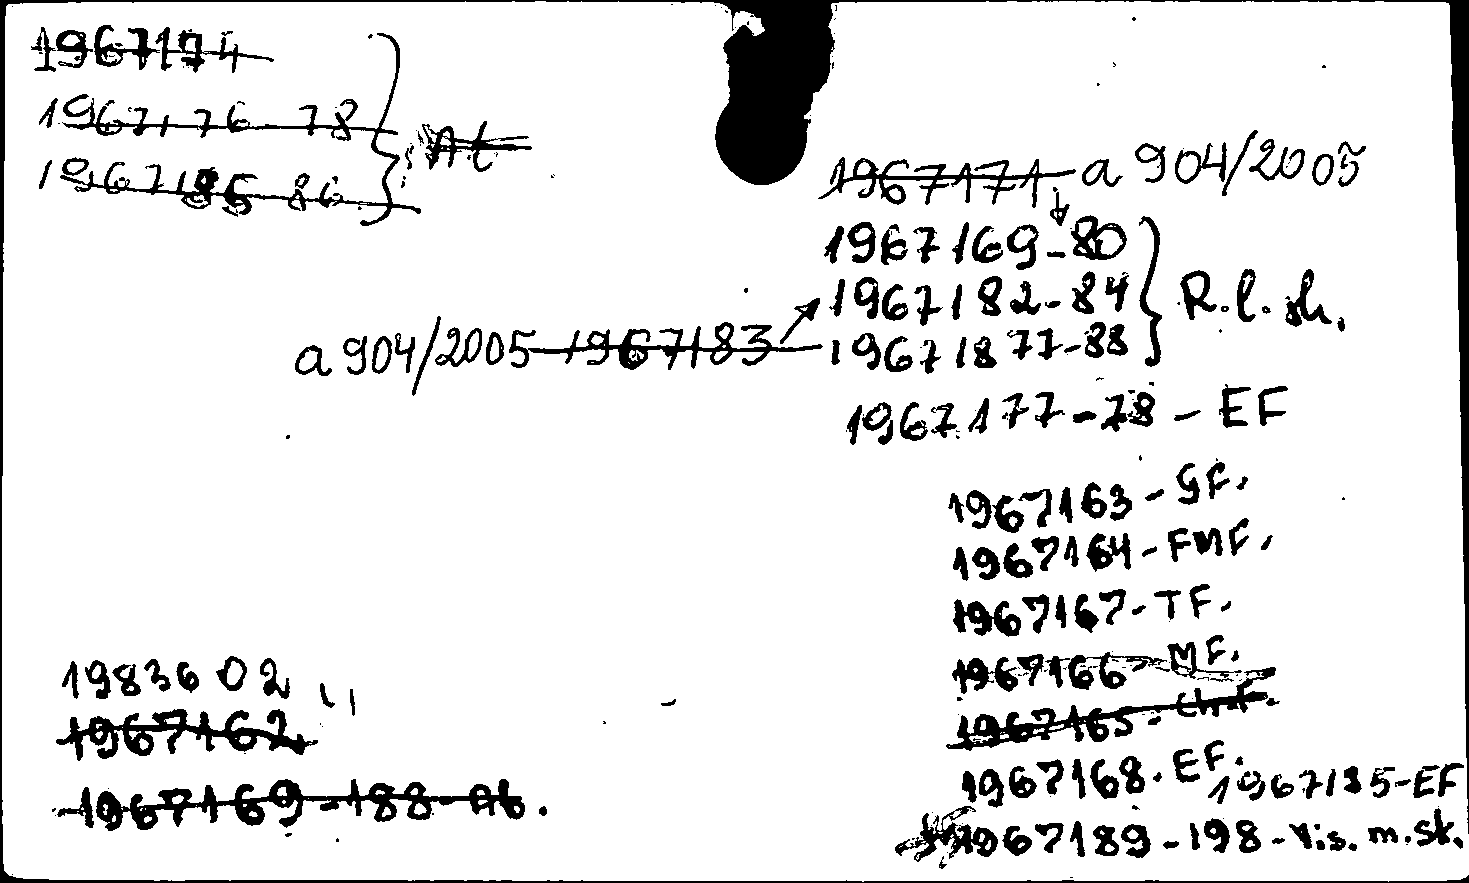 1967174
1967176-78
1967185 86
At
1967171 - a 904/2005
1967169-80
1967182-84
a 904/2005 - 1967183
1967187-88
R.l. sk.
1967177-78 - EF
1967163 - GF.
1967164 - FMF.
1967167 - TF.
1967166 - MF.
1967165 - Ch.F.
1967168. EF.
1967185-EF
1967189-198-Vis. m.sk.
1983602
1967162
1967169-188-At.